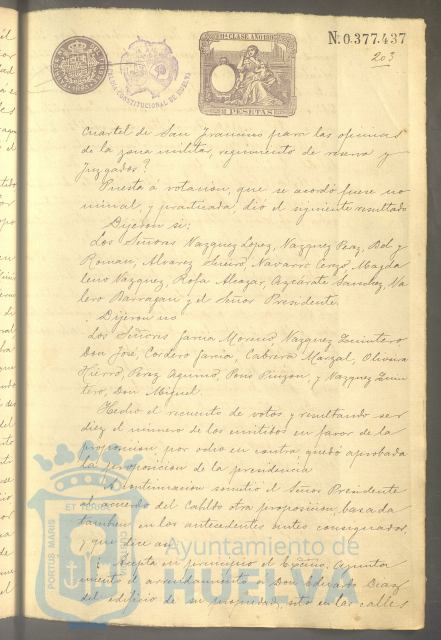 11ª CLASE AÑO 18
N. 0.377.437
203
ALCALDIA CONSTITUCIONAL DE HUELVA
PESETAS
Cuartel de San Francisco para las oficinas
de la zona militar, regimiento de reserva y
Juzgados?
Puesta á votación, que se acordó fuese no
minal, y practicada, dió el siguiente resultado
Dijeron si:
Los Señores Vazquez Lopez, Vazquez Perez, Bel y
Roman, Alvarez Seño, Navarro Cerejo, Magda
leno Vazquez, Rofa Alcazar, Azcárate Sanchez, Va
lero Barragan y el Señor Presidente
Dijeron no
Los Señores Garcia Moreno, Vazquez Quintero
Don José, Cordero Garcia, Cabrera Marzal, Oliveira
Hierro, Perez Aquino, Pons Pinzon, y Vazquez Quin
tero, Don Miguel.
Hecho el recuento de votos y resultando ser
diez el número de los emitidos en favor de la
proposicion, por ocho en contra, quedó aprobada
la proposicion de la presidencia
A continuacion sometió el Señor Presidente
al acuerdo del Cabildo otra proposicion, basada
tambien en los antecedentes antes consignados
y que dice asi
Acepta en principio el Excmo. Ayunta
miento el arrendamiento a Don Eduardo Diaz
del edificio de su propiedad, sito en las calles
PORTUS MARIS
ET TERRE
CUSTODIA
Ayuntamiento de
HUELVA